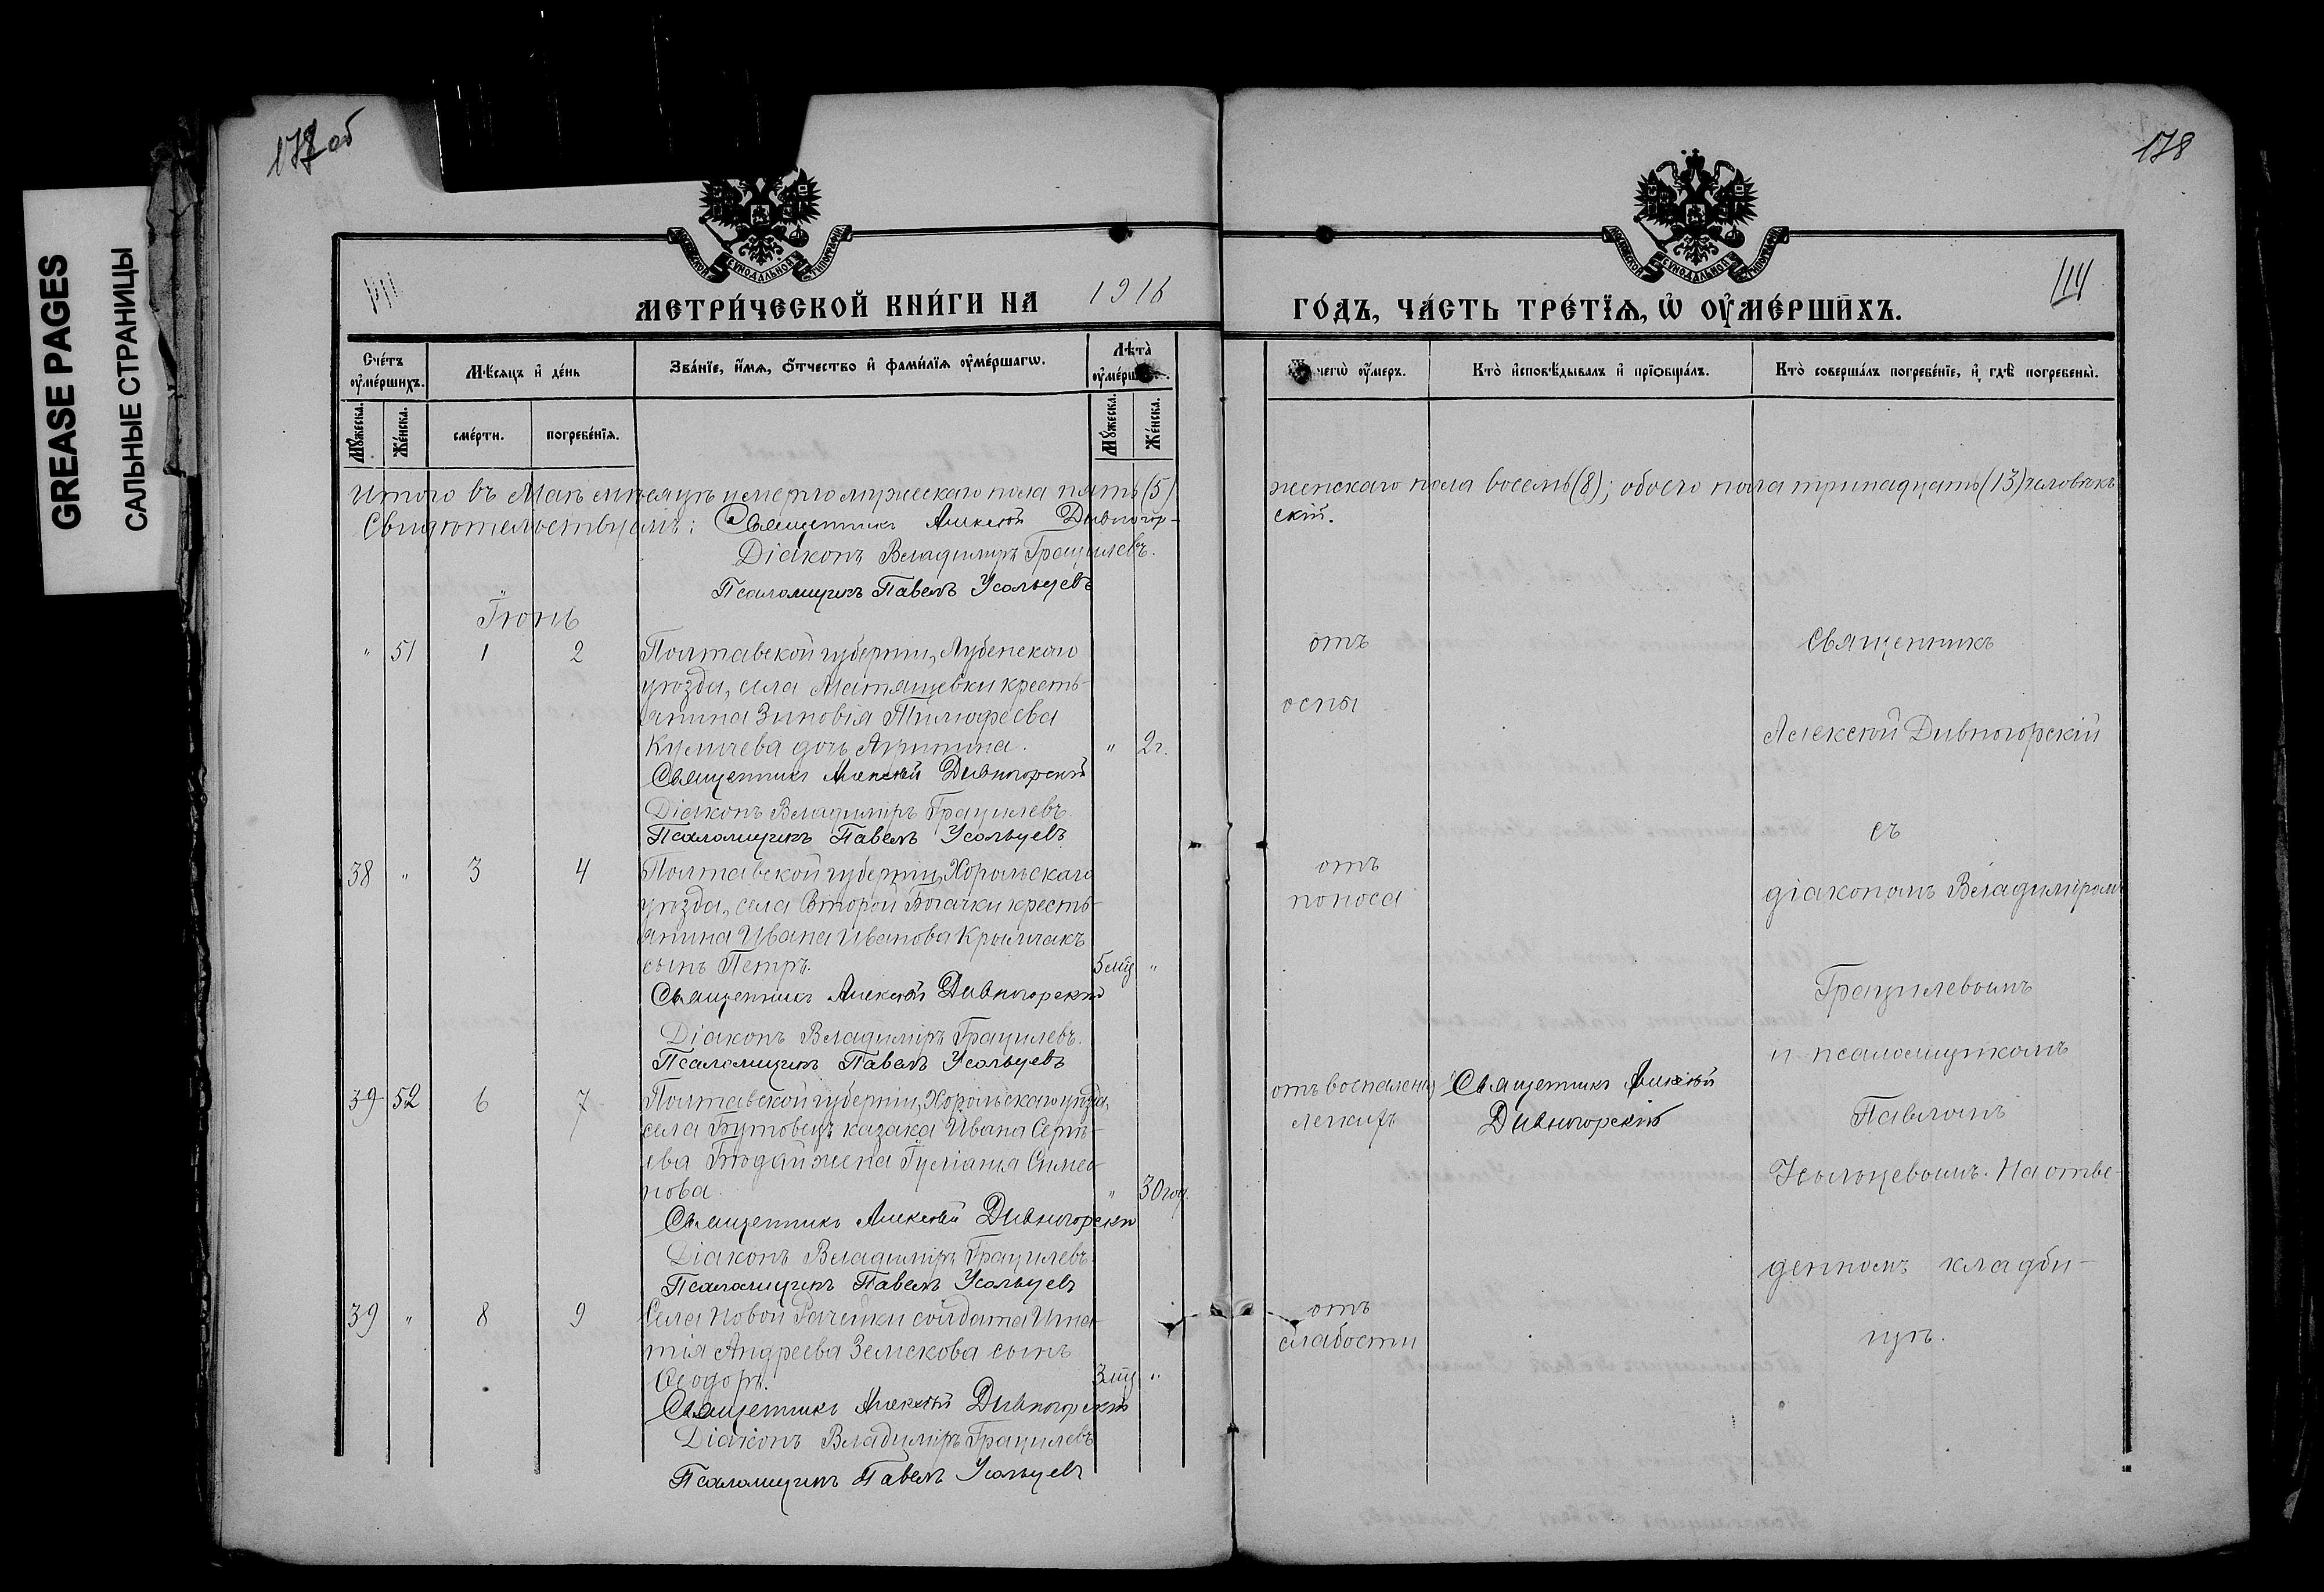 GREASE PAGES
САЛЬНЫЕ СТРАНИЦЫ
177 об
178
МЕТРИЧЕСКОЙ КНИГИ НА 1916 ГОДЪ, ЧАСТЬ ТРЕТІЯ, Ѡ ОУМЕРШИХЪ.
Счетъ оумершихъ.
Мѣсяцъ и день
Званіе, имя, отчество и фамилія оумершагѡ.
Лѣта оумершагѡ.
чегѡ оумеръ.
Кто исповѣдывалъ и пріѡбщалъ.
Кто совершалъ погребеніе, и гдѣ погребены.
Мужеска.
Женска.
смерти.
погребенія.
Мужеска.
Женска.
Итого въ Маѣ мѣсяцѣ умерло мужескаго пола пять (5) женскаго пола восемь (8); обоего пола тринадцать (13) человѣкъ
Свидѣтельствуемъ: Священникъ Алексѣй Дивногор-
скій.
Діаконъ Владиміръ Грацилевъ.
Псаломщикъ Павелъ Усольцевъ
Іюнь
" 51 1 2 Полтавской губерніи, Лубенскаго
уѣзда, села Матяшевки кресть-
янина Зиновія Тимофеева
Куличева дочь Агрипина. " 2 г.
отъ
оспы
Священникъ Алексѣй Дивногорскій
Діаконъ Владиміръ Грацилевъ
Псаломщикъ Павелъ Усольцевъ
38 " 3 4 Полтавской губерніи, Хорольскаго
уѣзда, села Второй Богачки кресть-
янина Ивана Иванова Крымчакъ
сынъ Петръ. 5 мц "
отъ
поноса
Священникъ Алексѣй Дивногорскій
Діаконъ Владиміръ Грацилевъ.
Псаломщикъ Павелъ Усольцевъ
39 52 6 7 Полтавской губерніи, Хорольскаго уѣзда,
села казака Ивана
жена Іуліанія Симео-
нова. " 30 год.
отъ воспаленія
легкихъ
Священникъ Алексѣй
Дивногорскій
Священникъ Алексѣй Дивногорскій
Діаконъ Владиміръ Грацилевъ.
Псаломщикъ Павелъ Усольцевъ
39 " 8 9 Села Новой Рачейки солдата Игна-
тія Андреева Земскова сынъ
Ѳеодоръ. 3 мц "
отъ
слабости
Священникъ Алексѣй Дивногорскій
Діаконъ Владиміръ Грацилевъ
Псаломщикъ Павелъ Усольцевъ
Священникъ
Алексѣй Дивногорскій
съ
діакономъ Владиміромъ
Грацилевымъ
и псаломщикомъ
Павломъ
Усольцевымъ. На отве-
денномъ кладби-
щѣ.